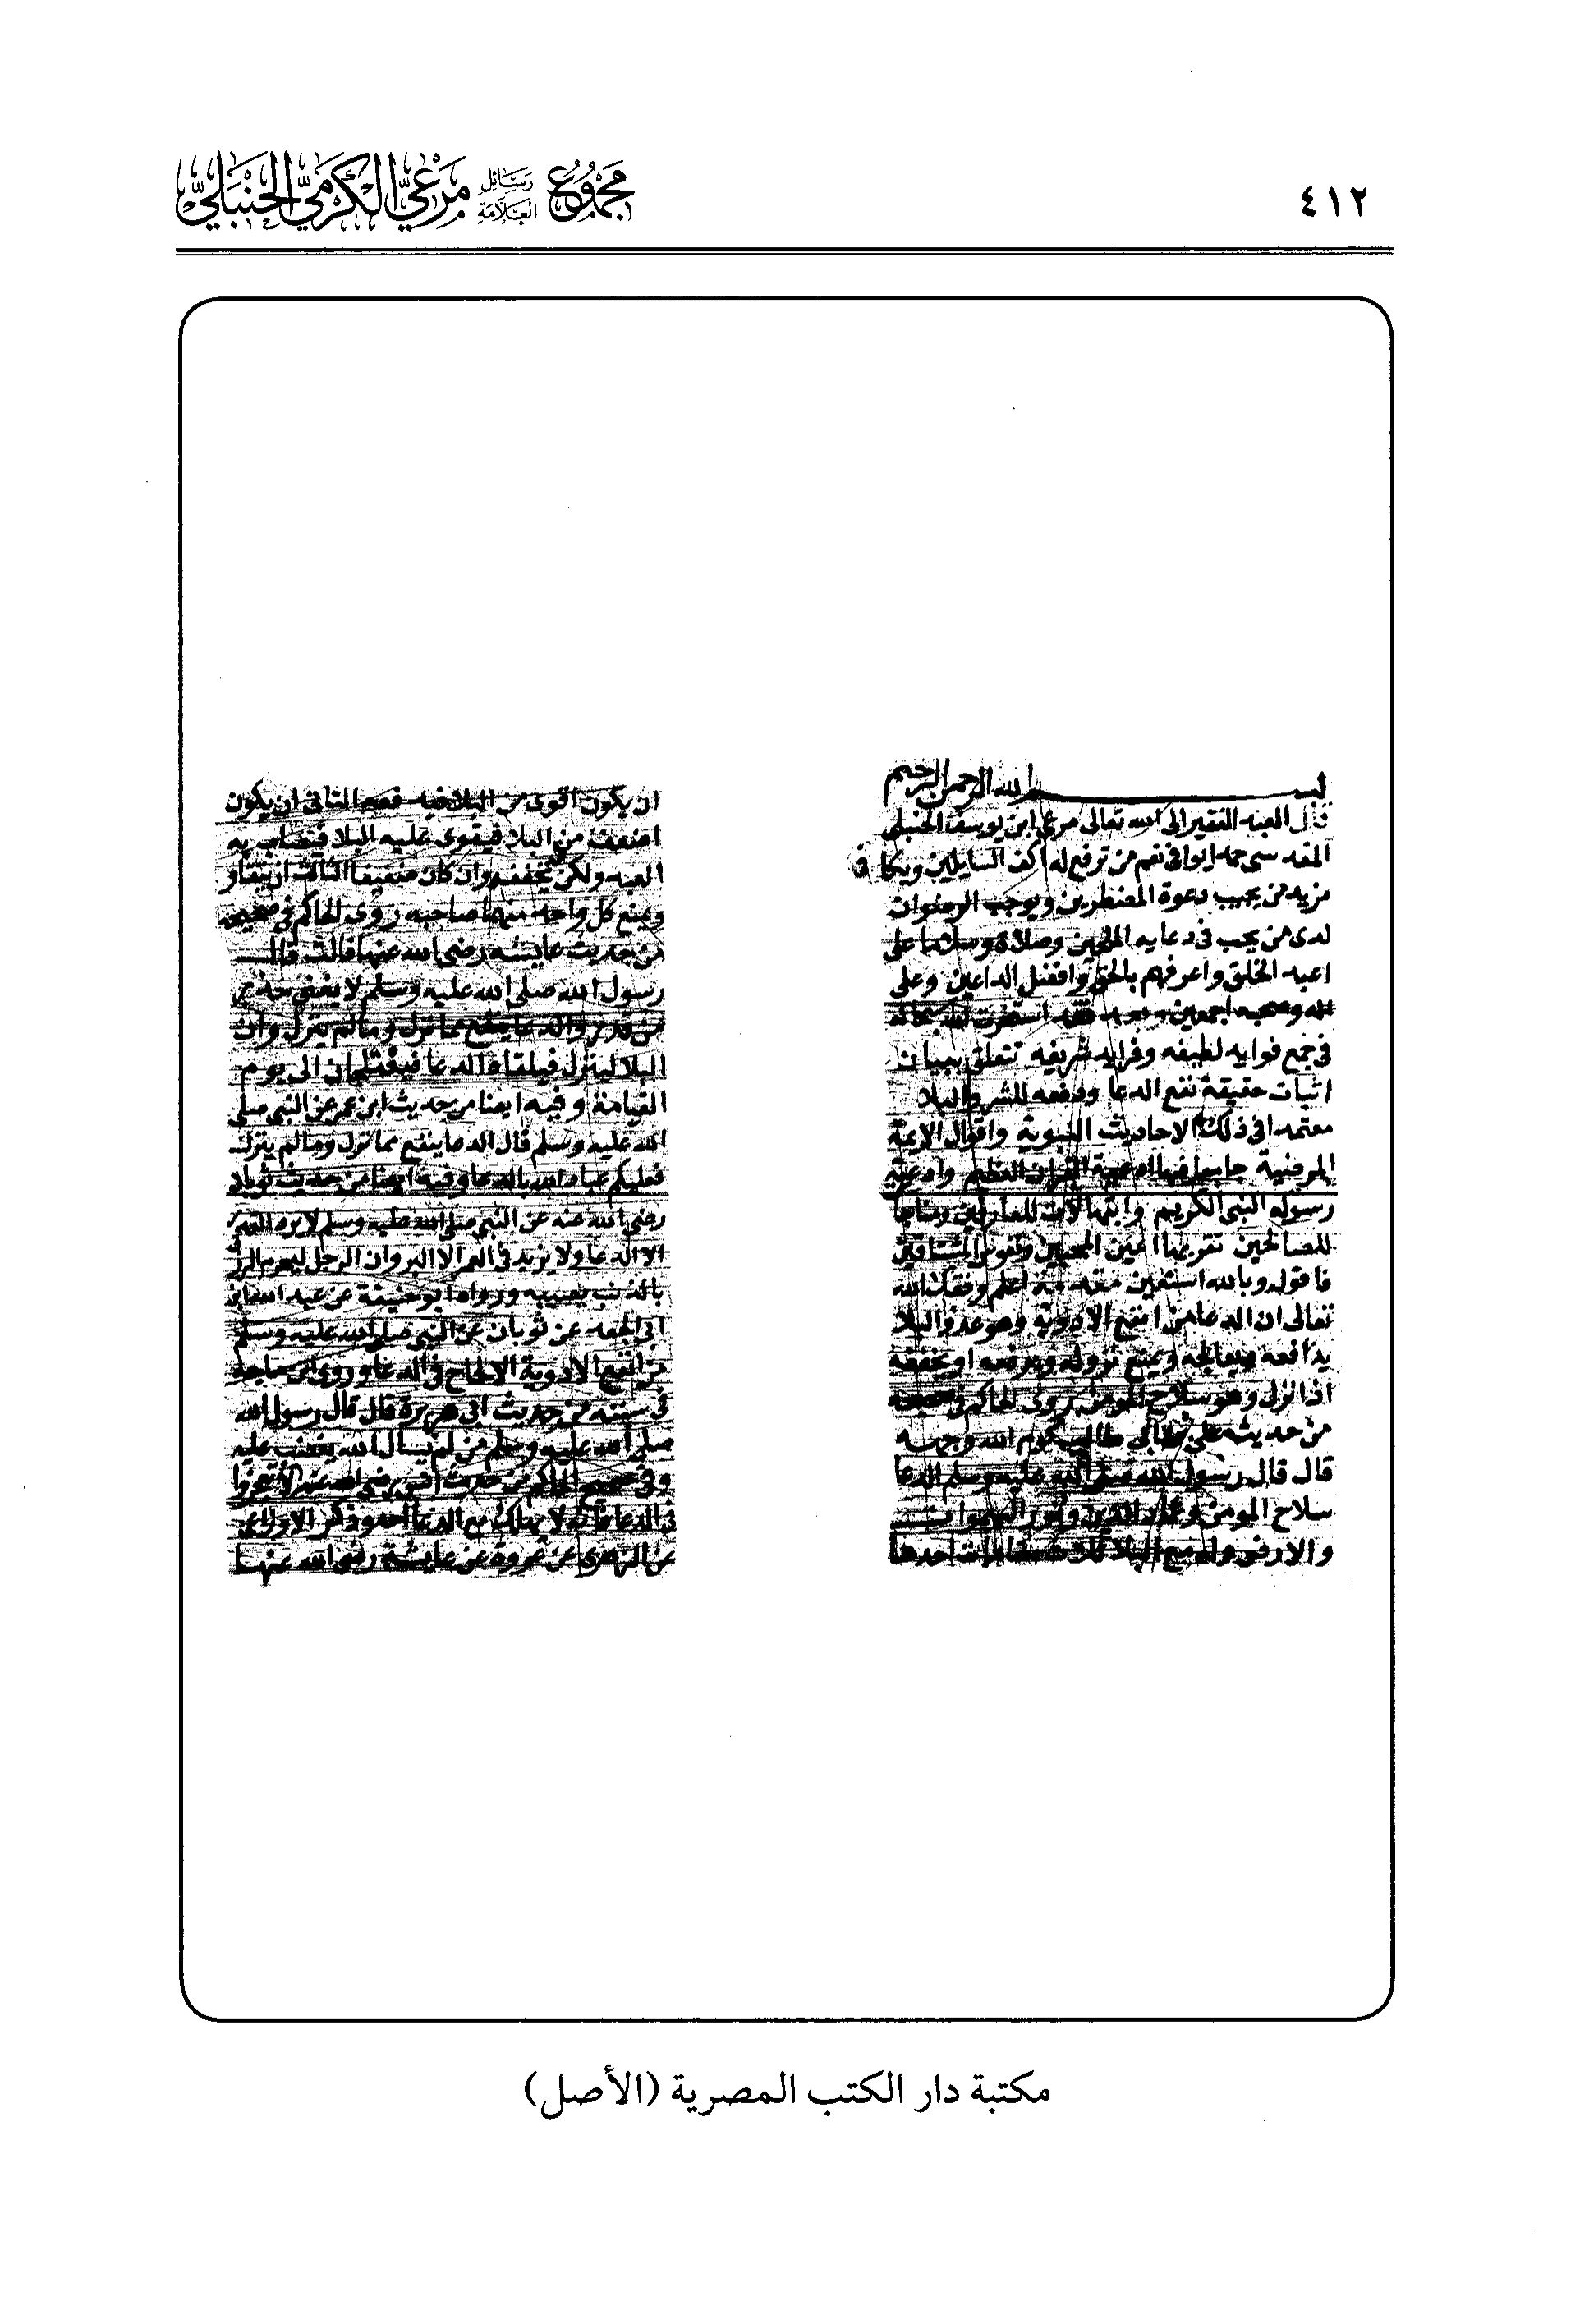 ٤١٢
مجموع رسائل العلامة مرعي الكرمي الحنبلي
بسم الله الرحمن الرحيم
قال العبد الفقير الى الله تعالى مرعي ابن يوسف الحنبلي
المقدسي حمدا يوافي نعم من ترفع له اكف السايلين ويكافي
مزيد من يجيب دعوة المضطرين ويوجب الرضوان
لدى من يحب في دعايه الملحين وصلاة وسلاما على
اعبد الخلق واعرفهم بالحق وافضل الداعين وعلى
اله وصحبه اجمعين وبعد فقد استخرت الله سبحانه
في جمع فوايد لطيفه وفرايد شريفه تتعلق ببيان
اثبات حقيقة نفع الدعا ودفعه للشر والبلا
معتمدا في ذلك الاحاديث النبويه واقوال الايمة
المرضية جامعا فيها ادعية القران العظيم وادعية
رسوله النبي الكريم وابتهالات للعارفين ومناجاة
للصالحين تقر بها اعين المحبين المشتاقين
فاقول وبالله استعين مقدمة اعلم وفقك الله
تعالى ان الدعا من انفع الادوية وهو عدو البلا
يدافعه ويعالجه ويمنع نزوله ويرفعه او يخففه
اذا نزل وهو سلاح المومن روى الحاكم في صحيحه
من حديث علي بن ابي طالب كرم الله وجهه
قال قال رسول الله صلى الله عليه وسلم الدعا
سلاح المومن وعماد الدين ونور السموات
والارض وله مع البلا ثلاث مقامات احدها
ان يكون اقوى من البلا فيدفعه الثاني ان يكون
اضعف من البلا فيقوى عليه البلا فيصاب به
العبد ولكن يخففه وان كان ضعيفا الثالث ان يتقاوما
ويمنع كل واحد منهما صاحبه روى الحاكم في صحيحه
من حديث عايشه رضي الله عنها قالت قال
رسول الله صلى الله عليه وسلم لا يغني حذر
من قدر والدعا ينفع مما نزل ومما لم ينزل وان
البلا لينزل فيلقاه الدعا فيعتلجان الى يوم
القيامة وفيه ايضا من حديث ابن عمر عن النبي صلى
الله عليه وسلم قال الدعا ينفع مما نزل ومما لم ينزل
فعليكم عباد الله بالدعا وفيه ايضا من حديث ثوبان
رضي الله عنه عن النبي صلى الله عليه وسلم لا يرد القدر
الا الدعا ولا يزيد في العمر الا البر وان الرجل ليحرم الرزق
بالذنب يصيبه ورواه ابو حنيفة عن عبد الله ابن
ابي الجعد عن ثوبان عن النبي صلى الله عليه وسلم
من انفع الادوية الالحاح في الدعا وروى ابن ماجه
في سننه من حديث ابي هريرة قال قال رسول الله
صلى الله عليه وسلم من لم يسال الله يغضب عليه
وفي صحيح الحاكم من حديث انس رضي الله عنه لا تعجزوا
في الدعا فانه لا يهلك مع الدعا احد وذكر الاوزاعي
عن الزهري عن عروة عن عايشة رضي الله عنها
مكتبة دار الكتب المصرية (الأصل)